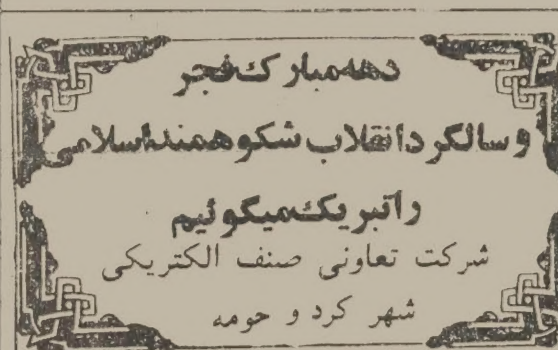 دهه مبارک فجر
و سالگرد انقلاب شکوهمند اسلامی
را تبریک میگوئیم
شرکت تعاونی صنف الکتریکی
شهر کرد و حومه